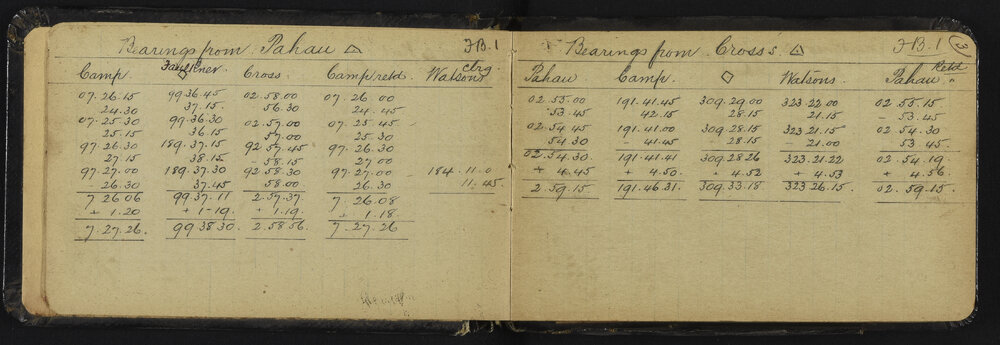 Bearings from Pahau △ FB.1
Camp. Faulkner. Cross. Camp retd. Watsons clrg
07.26.15 99.36.45 02.58.00 07.26.00
24.30 37.15. 56.30 24.45
07.25.30 99.36.30 02.57.00 07.25.45 -
25.15 36.15 57.00 25.30
97.26.30 189.37.15 92.57.45 97.26.30
27.15 38.15 - 58.15 27.00
97.27.00 189.37.30 92.58.30 97.27.00 - 184.11.0
26.30 37.45 58.00 26.30 11.45
7.26.06 99.37.11 2.57.37 7.26.08
+ 1.20 + 1-19. + 1.19. + 1.18
7.27.26. 99.38.30 2.58.56. 7.27.26
Bearings from Cross's △ FB.1 3
Pahau Camp. ◇ Watsons. Pahau Retd
02.55.00 191.41.45 309.29.00 323.22.00 02.55.15
53.45 42.15 28.15 21.15 - 53.45
02.54.45 191.41.00 309.28.15 323.21.15 02.54.30
54.30 - 41.45 - 28.15 - 21.00 53.45
02.54.30. 191.41.41 309.28.26 323.21.22 02.54.19
+ 4.45 + 4.50. + 4.52 + 4.53 + 4.56.
2.59.15 191.46.31 309.33.18 323.26.15. 02.59.15